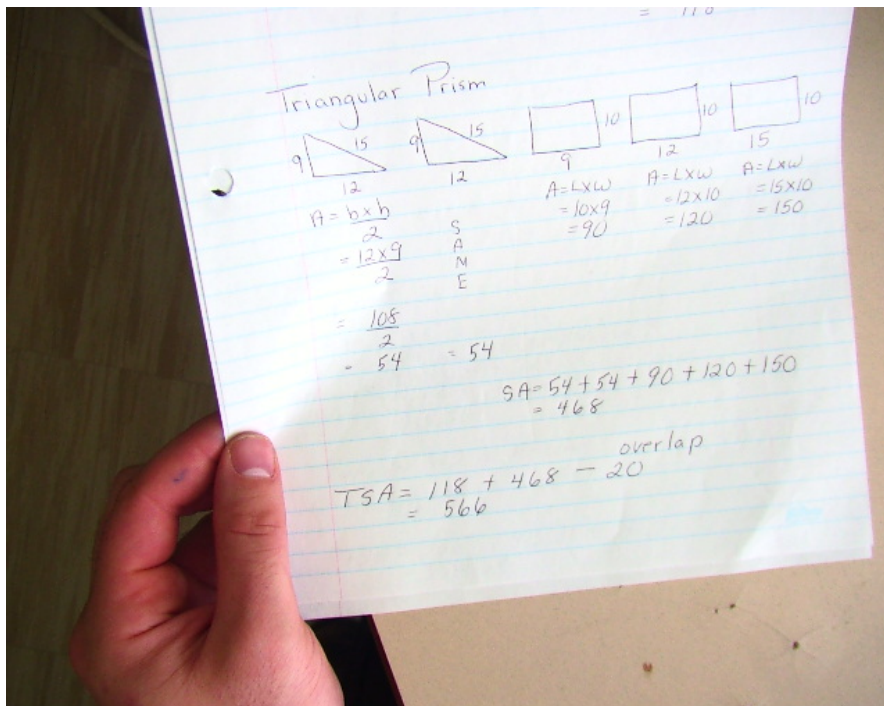 = 118
Triangular Prism
9 15 12
9 15 12
10 9
10 12
10 15
A = b x h
2
= 12 x 9
2
= 108
2
= 54
S
A
M
E
= 54
A = L x w
= 10 x 9
= 90
A = L x w
= 12 x 10
= 120
A = L x w
= 15 x 10
= 150
SA = 54 + 54 + 90 + 120 + 150
= 468
overlap
TSA = 118 + 468 - 20
= 566